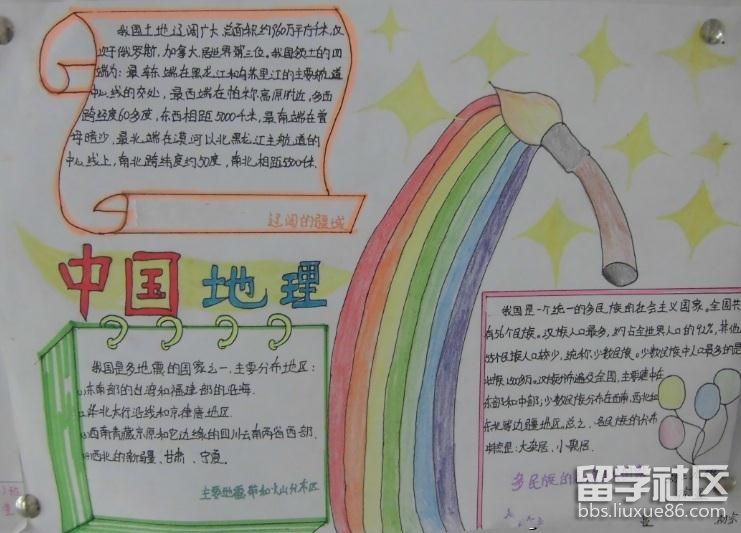 我国土地辽阔广大,总面积约960万平方千米,仅
次于俄罗斯、加拿大,居世界第三位。我国领土的四
端为:最东端在黑龙江和乌苏里江的主要航道
中心线的交处,最西端在帕米高原附近,东西
跨经度60多度,东西相距5000千米,最南端在曾
母暗沙,最北端在漠河以北黑龙江主航道的
中心线上,南北跨纬度约50度,南北相距5500千米.
辽阔的疆域
中国地理
我国是多地震的国家之一,主要分布地区:
东南部的台湾和福建部的沿海.
华北太行沿线和京津唐地区.
西南青藏高原和它边缘的四川云南两省西部.
西北的新疆、甘肃、宁夏。
主要地震带和火山分布区
我国是一个统一的多民族的社会主义国家。全国共
有56个民族。汉族人口最多,约占全世界人口的92%,其他
55个民族人口较少,统称少数民族。少数民族中人口最多的是
壮族1500多万。汉族分布遍及全国,主要集中在
东部和中部,少数民族分布在西南、西北和
东北等边疆地区。总之,各民族的分布
特点是:大杂居、小聚居.
多民族的
留学社区
bbs.liuxue86.com